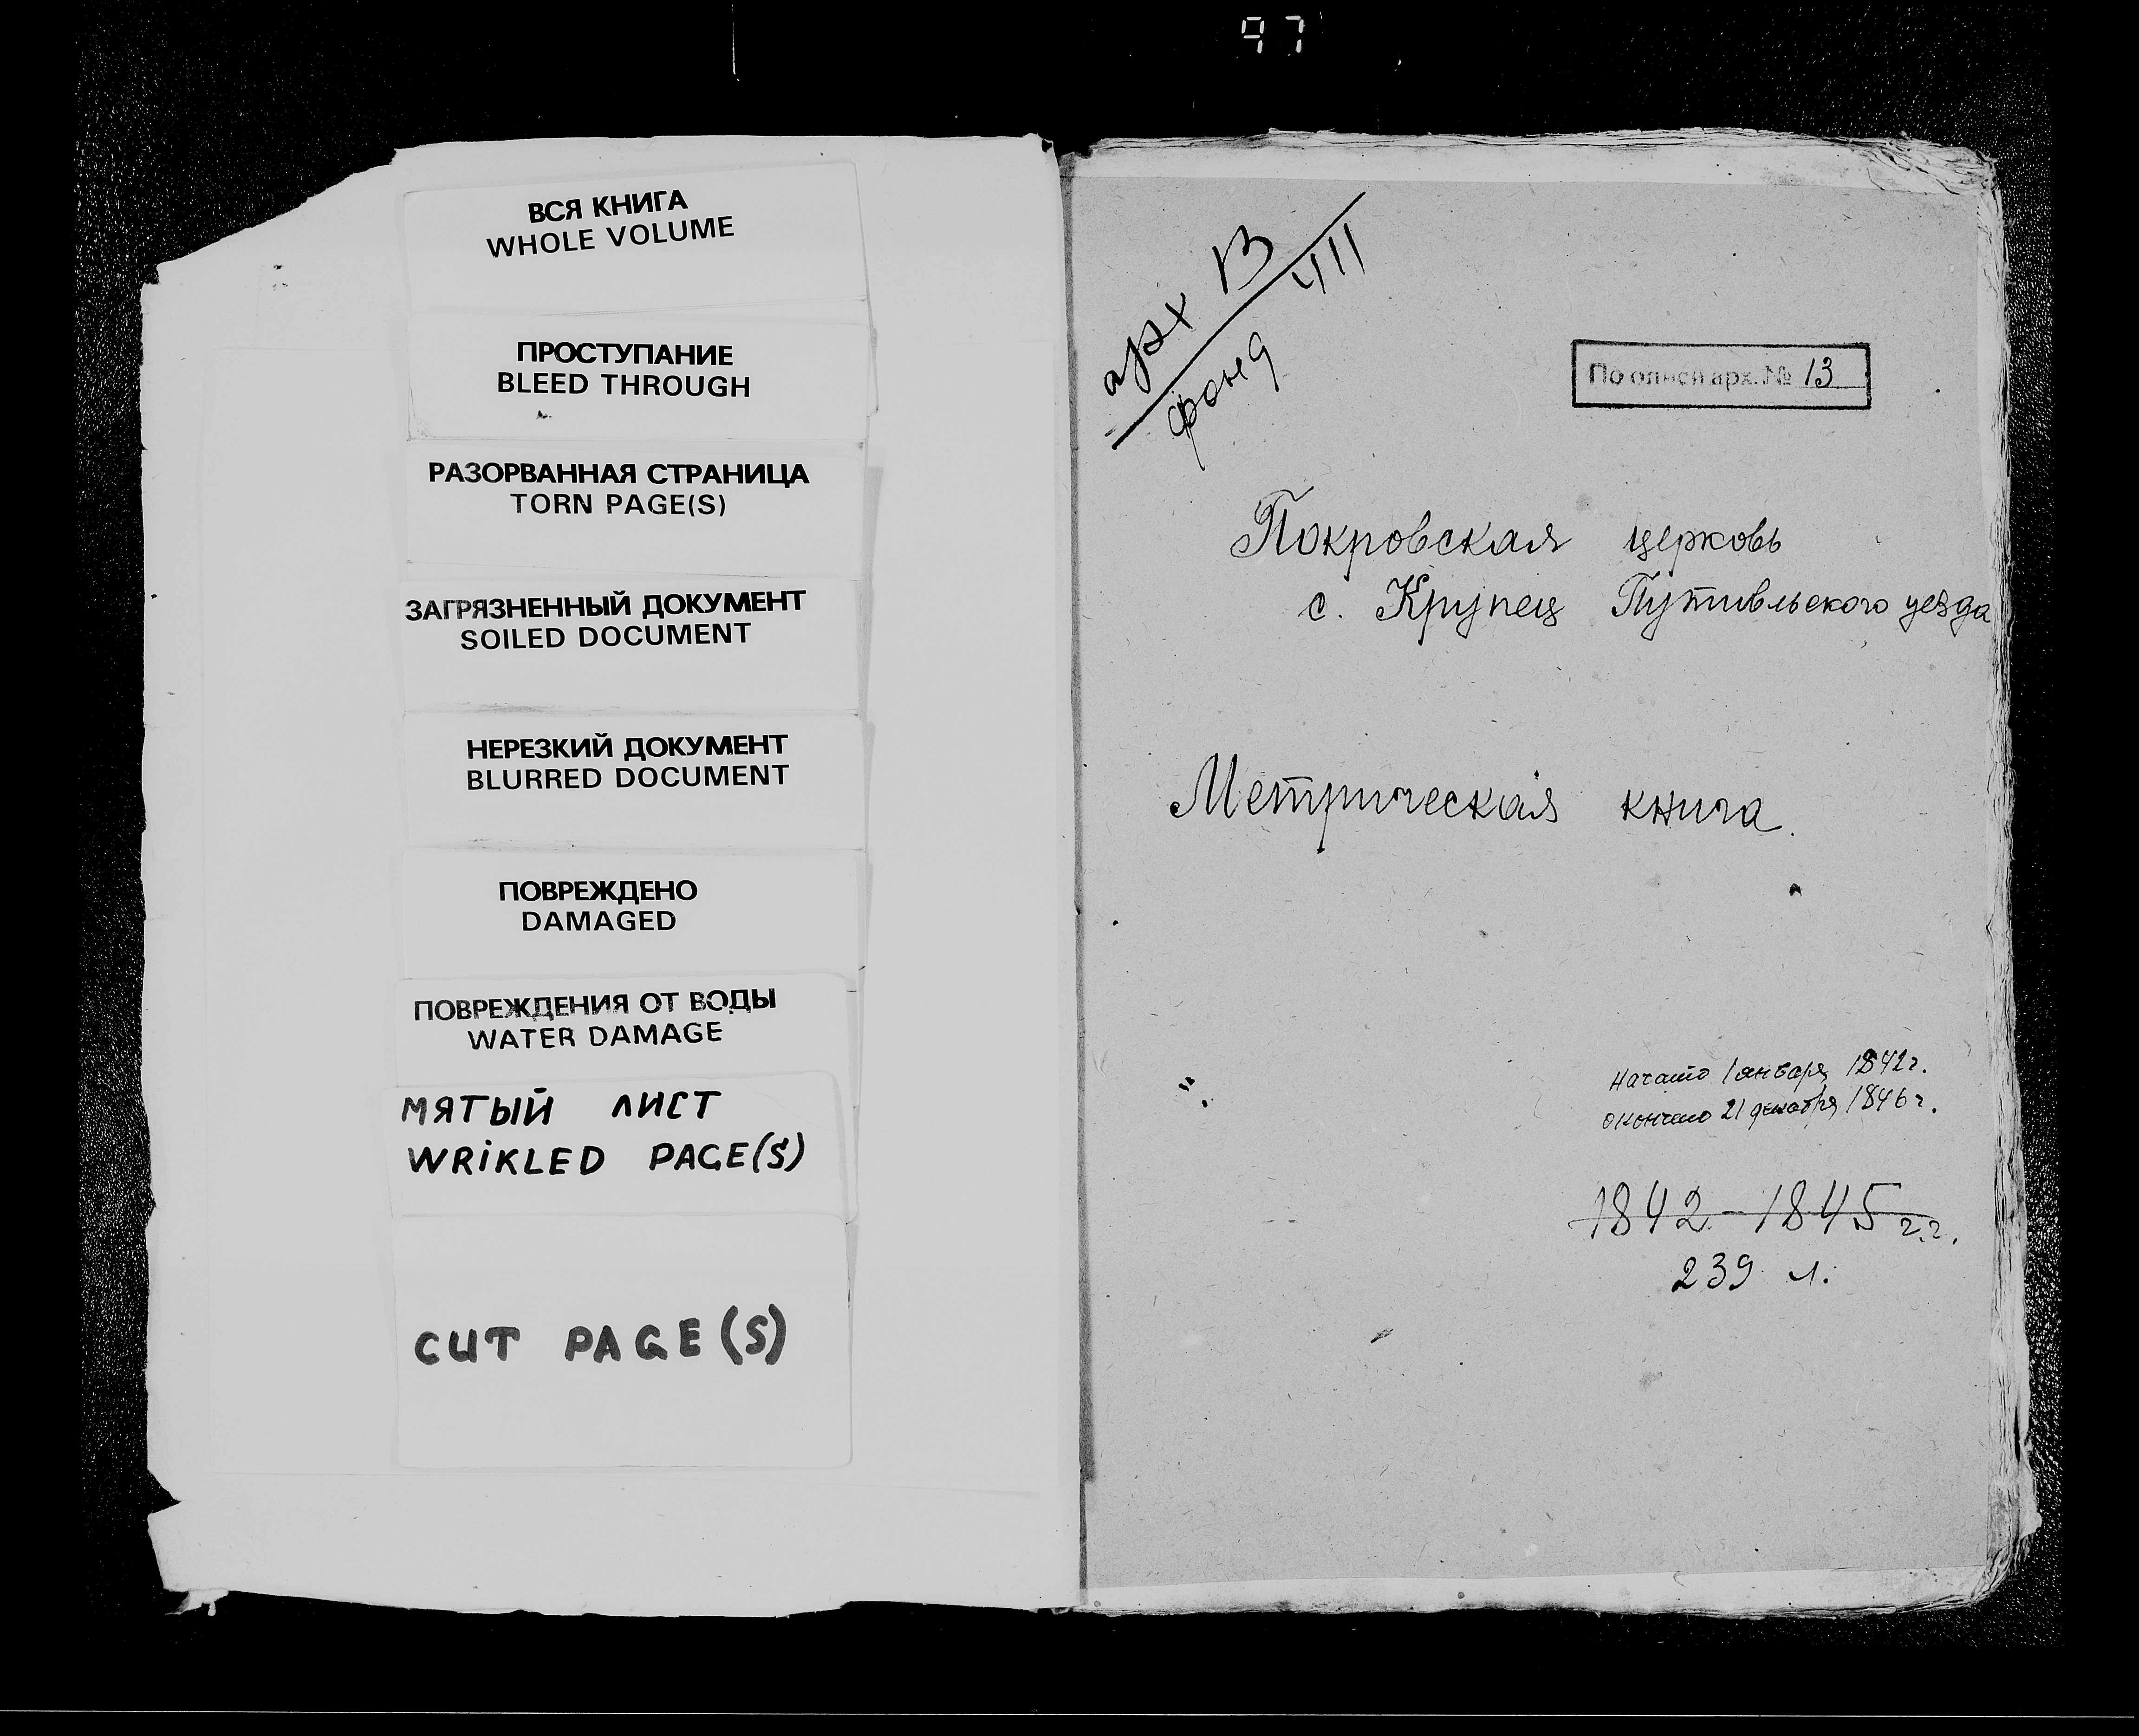 97
ВСЯ КНИГА
WHOLE VOLUME
ПРОСТУПАНИЕ
BLEED THROUGH
РАЗОРВАННАЯ СТРАНИЦА
TORN PAGE(S)
ЗАГРЯЗНЕННЫЙ ДОКУМЕНТ
SOILED DOCUMENT
НЕРЕЗКИЙ ДОКУМЕНТ
BLURRED DOCUMENT
ПОВРЕЖДЕНО
DAMAGED
ПОВРЕЖДЕНИЯ ОТ ВОДЫ
WATER DAMAGE
МЯТЫЙ ЛИСТ
WRiKLED PAGE(S)
CUT PAGE(S)
арх 13
фонд 411
По описи арх. № 13
Покровская церковь
с. Крупец Путивльского уезда
Метрическая книга.
Начато 1 января 1842 г.
окончено 21 декабря 1846 г.
1842-1845 г.г.
239 л.